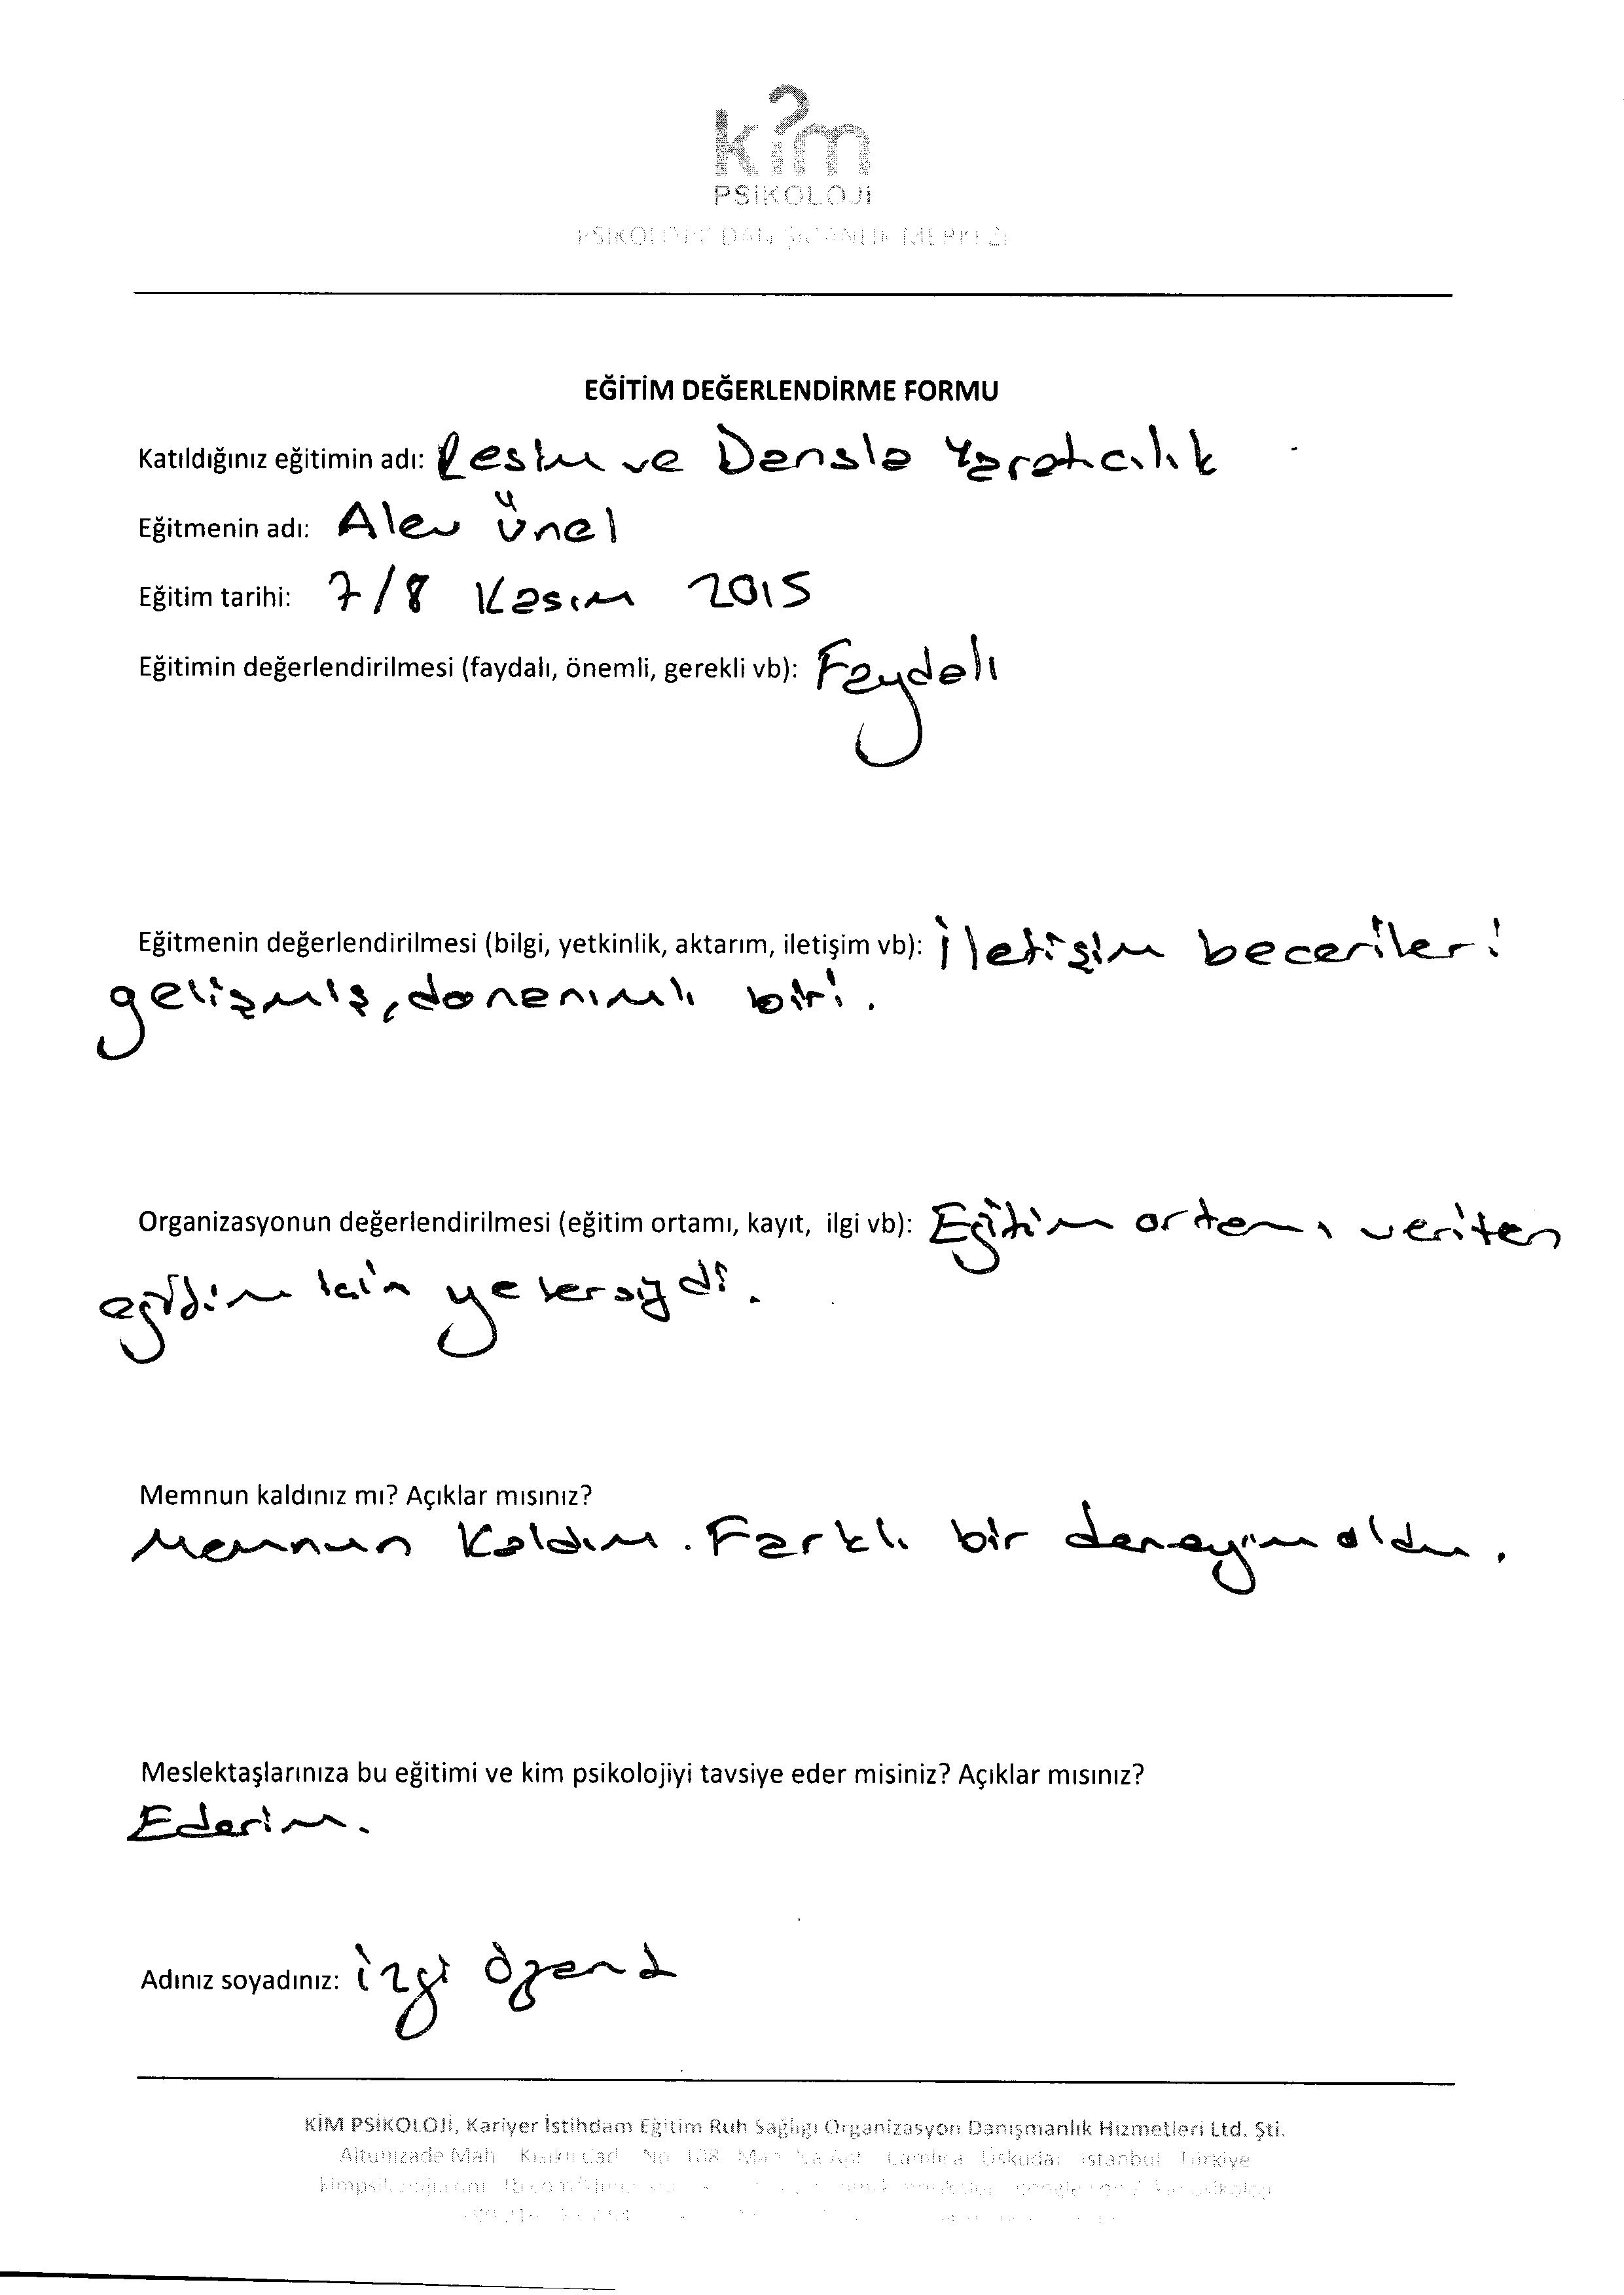 kim
PSİKOLOJİ
PSİKOLOJİK DANIŞMANLIK MERKEZİ
EĞİTİM DEĞERLENDİRME FORMU
Katıldığınız eğitimin adı: Resim ve Dansla Yaratıcılık
Eğitmenin adı: Alev Ünel
Eğitim tarihi: 7/8 Kasım 2015
Eğitimin değerlendirilmesi (faydalı, önemli, gerekli vb): Faydalı
Eğitmenin değerlendirilmesi (bilgi, yetkinlik, aktarım, iletişim vb): İletişim becerileri
gelişmiş, donanımlı biri.
Organizasyonun değerlendirilmesi (eğitim ortamı, kayıt, ilgi vb): Eğitim ortamı verilen
eğitim için yeterliydi.
Memnun kaldınız mı? Açıklar mısınız?
Memnun Kaldım. Farklı bir deneyim oldu.
Meslektaşlarınıza bu eğitimi ve kim psikolojiyi tavsiye eder misiniz? Açıklar mısınız?
Ederim.
Adınız soyadınız: İzgi
KİM PSİKOLOJİ, Kariyer İstihdam Eğitim Ruh Sağlığı Organizasyon Danışmanlık Hizmetleri Ltd. Şti.
Altunizade Mah Kısıklı Cad No Çamlıca Üsküdar İstanbul Türkiye